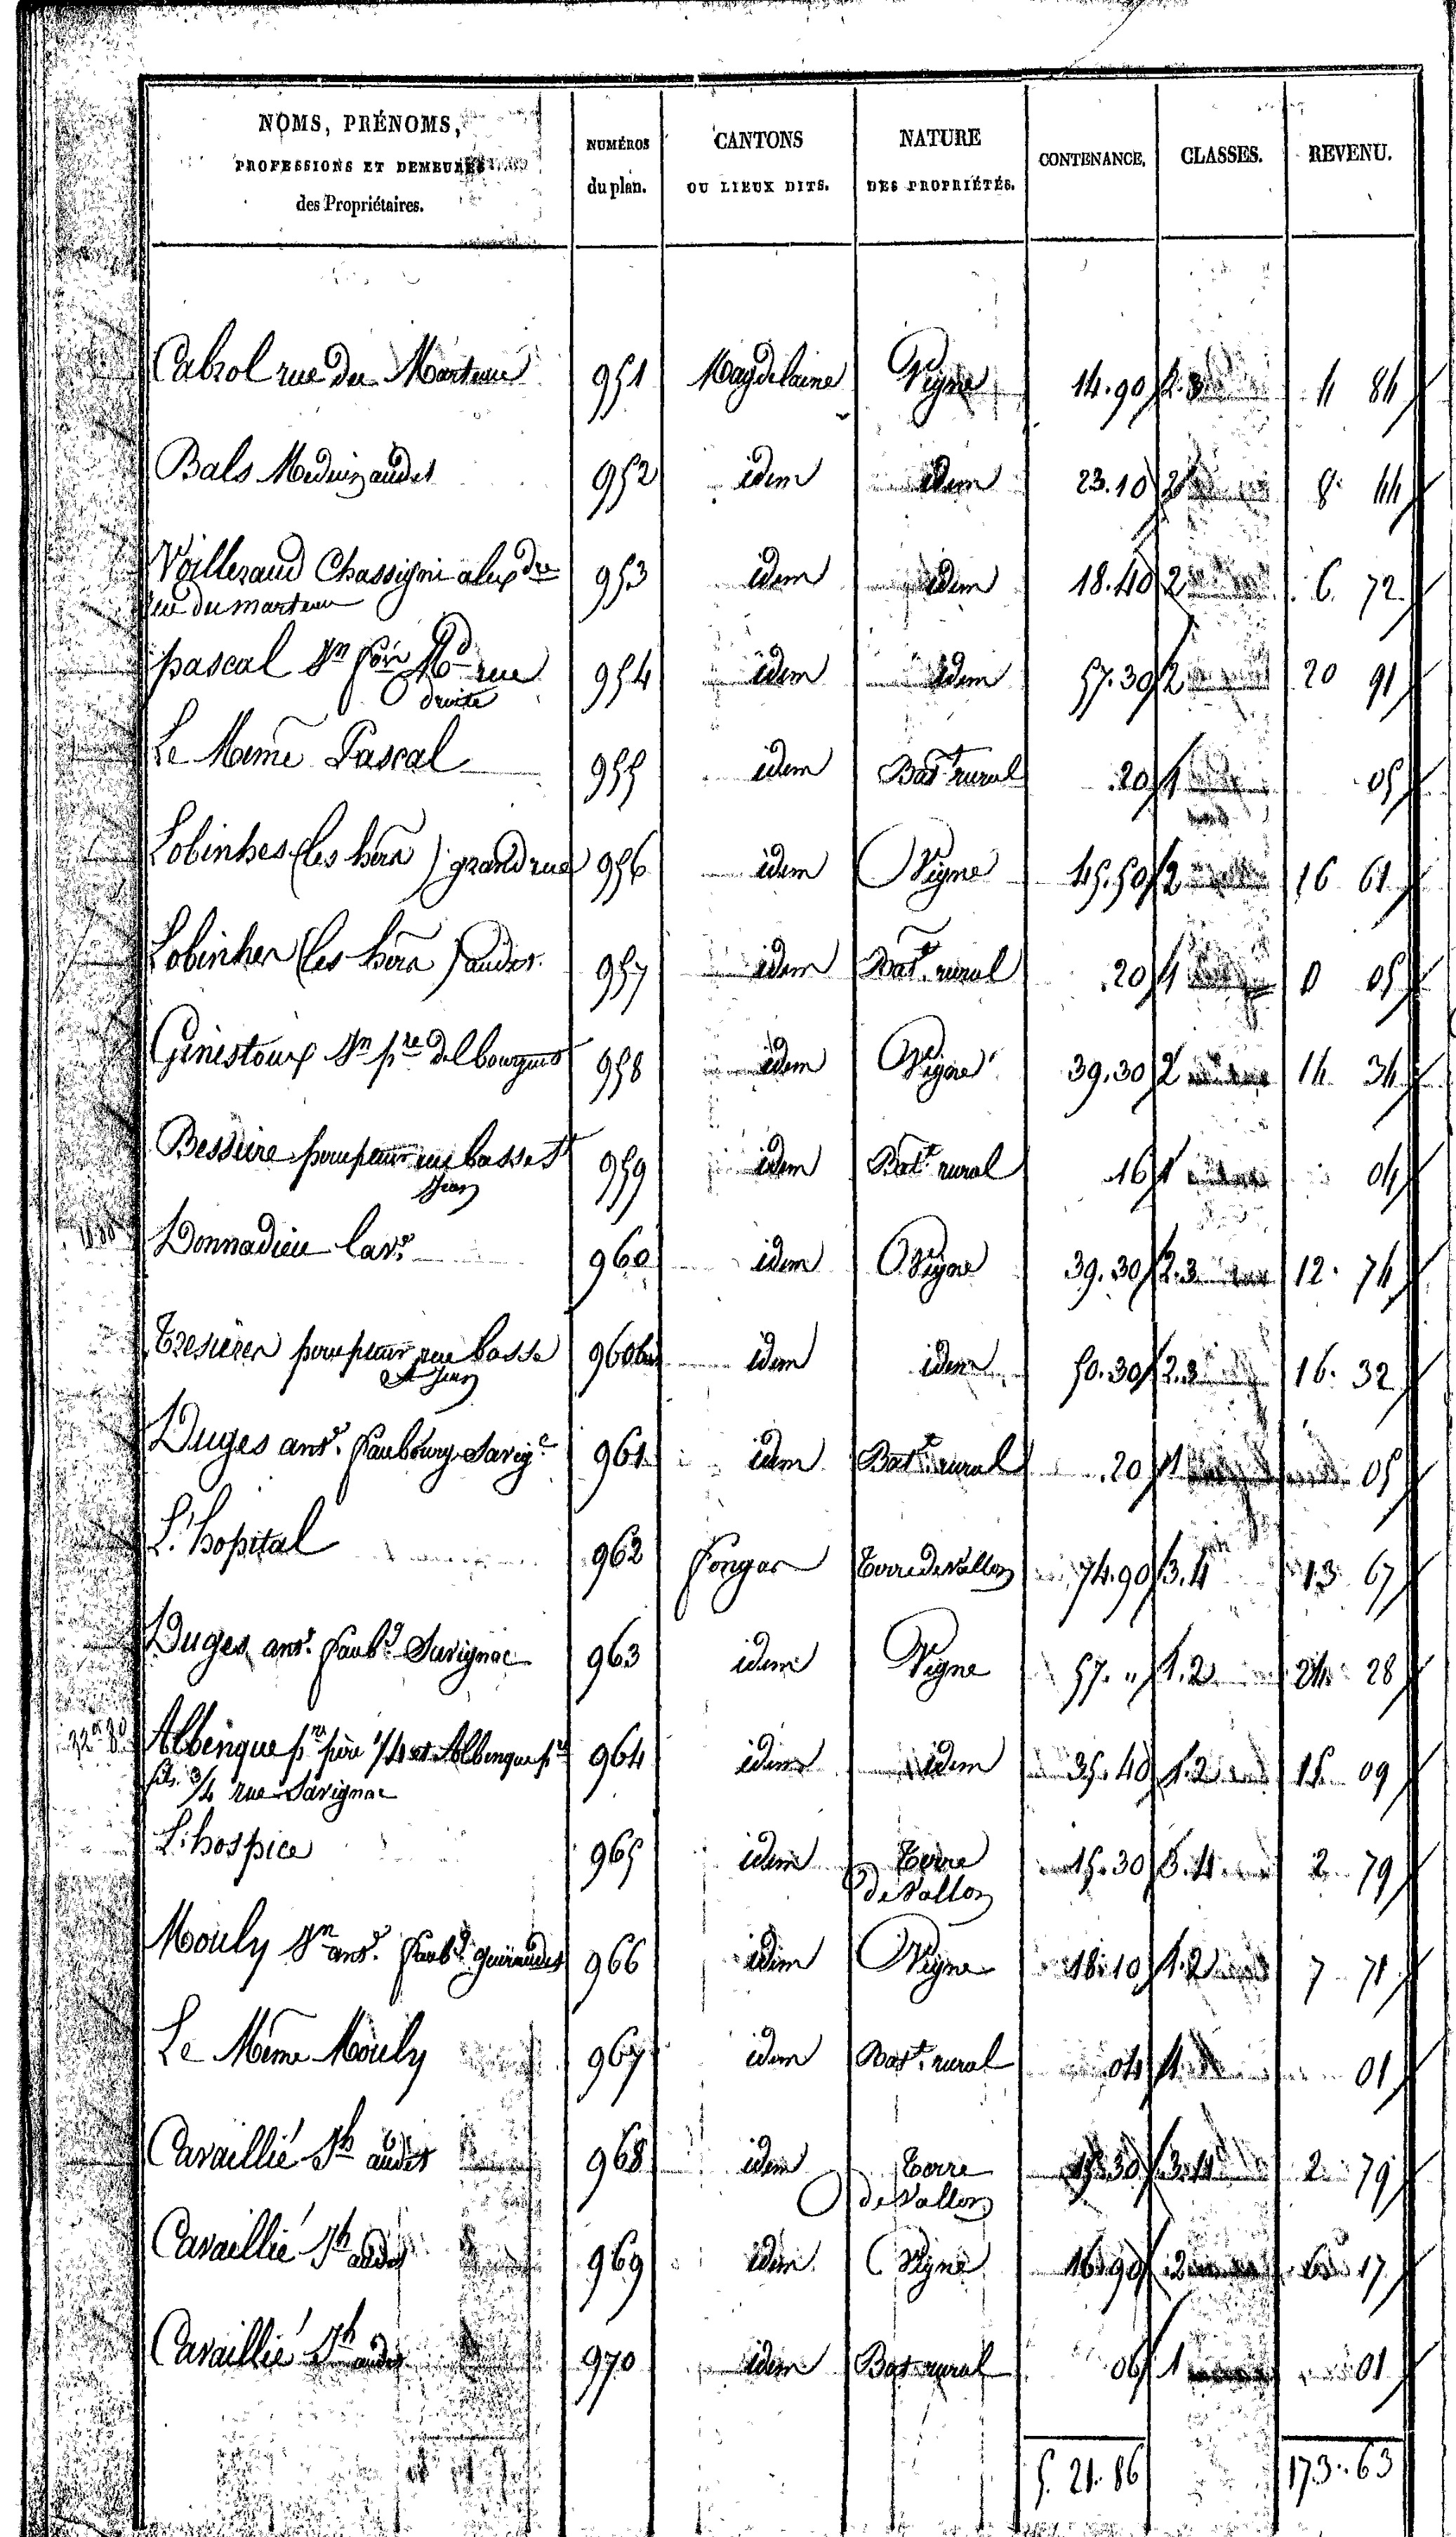 NOMS, PRÉNOMS, PROFESSIONS ET DEMEURES des Propriétaires. NUMÉROS du plan. CANTONS OU LIEUX DITS. NATURE DES PROPRIÉTÉS. CONTENANCE. CLASSES. REVENU.
Cabrol rue du Marteau 951 Magdelaine Vigne 14.90 2.3 4 84
Bals 952 idem idem 23.10 2 8 44
Voillerand Chassigni alexdre 953 idem idem 18.40 2 6. 72
rue du marteau
pascal Jn Md rue 954 idem idem 57.30 2 20 91
droite
Le Meme Pascal 955 idem Batt rural .20 1 05
Lobinhes (les hers) grand rue 956 idem Vigne 45.50 2 16 61
Lobinhes (les hers) audes 957 idem Batt. rural .20 1 0 05
Ginistoux Jn pre 958 idem Vigne 39.30 2 14 34
rue basse St 959 idem Batt rural .16 1 04
Jean
Donnadieu 960 idem Vigne 39.30 2.3 12. 74
rue basse 960bis idem idem 50.30 2.3 16. 32
St Jean
Duges ant. faubourg Savige 961 idem Batt rural .20 1 05
L'hopital 962 Fongas Terre de Vallon 74.90 3.4 13 67
Duges ant. faubg Savignac 963 idem Vigne 57. " 1.2 24 28
Albenque pre père 1/4 et Albenque pre 964 idem idem 35.40 1.2 15 09
fils 3/4 rue Savignac
L'hospice 965 idem Terre 15.30 3.4 2 79
de Vallon
Mouly Jn ant. faubg guiraudet 966 idem Vigne 18.10 1.2 7 71
Le Même Mouly 967 idem Batt. rural 04 1 01
Cavaillié Jh audes 968 idem Terre 15.30 3.4 2 79
de Vallon
Cavaillié Jh audes 969 idem Vigne 16.90 2 6 17
Cavaillié Jh audes 970 idem Bat rural 06 1 01
5. 21. 86 173. 63